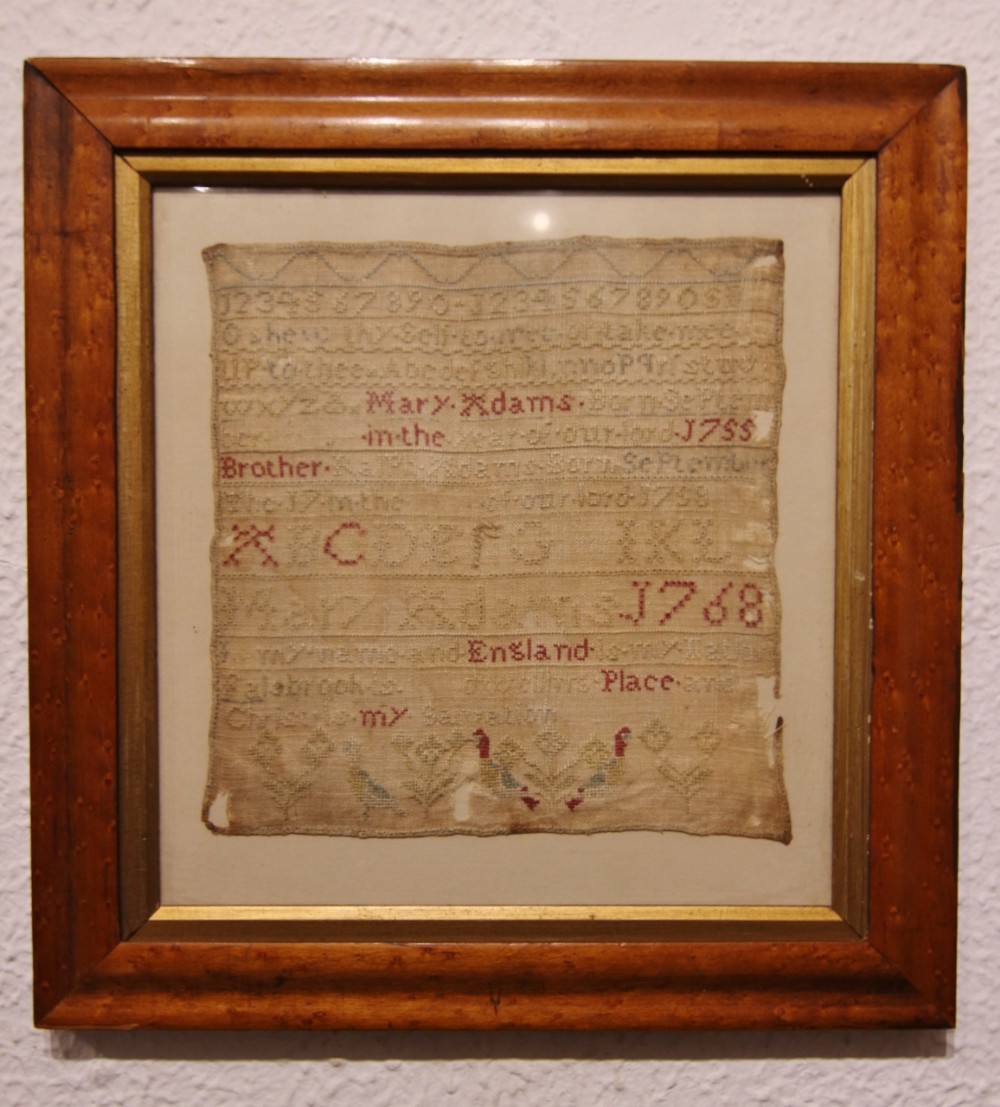 J234567890-J234567890
O shew thy Self to mee or take mee
UP to thee Abcdefgh nnoPqrstuv
wxyz& Mary Adams Born SePtem
ber in the year of our lord J755
Brother RalPh Adams Born SePtember
the J7 in the of our lord J758
ABCDEFG IKL
Mary Adams J768
my name and England is my
Place and
Christ is my Salvation